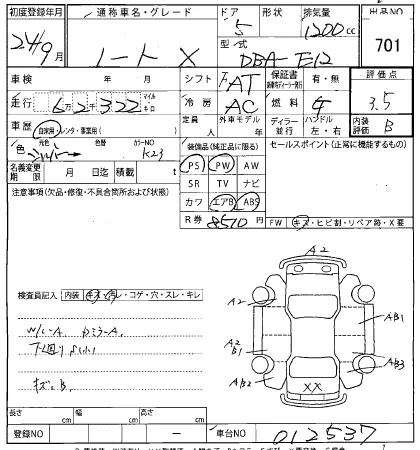 初度登録年月 通称車名・グレード ドア 形状 排気量 出品NO
24/9月 ノート X 5 1200cc 701
型式
DBA-E12
車検 年 月 シフト AT 保証書 有・無 評価点
走行 6万2千322 マイル キロ 冷房 AC 燃料 G 3.5
車歴 自家用・レンタ・事業用( ) 定員 人 外車モデル 年 ディーラー 並行 ハンドル 左・右 内装評価 B
色 元色 シルバー 色替 カラーNO K23 装備品(純正品に限る) セールスポイント(正常に機能するもの)
PS PW AW
名義変更期限 月 日迄 積載 t SR TV ナビ
注意事項(欠品・修復・不具合箇所および状態) カワ エアB ABS
R券 8510円 FW キズ・ヒビ割・リペア跡・X要
A2
検査員記入 内装 キズ・汚レ・コゲ・穴・スレ・キレ
A2 AB1
W/L-A
A2
B1
下廻りサ(小)
AB3
XX
A2
長さ cm 幅 cm 高さ cm
登録NO 車台NO 012537